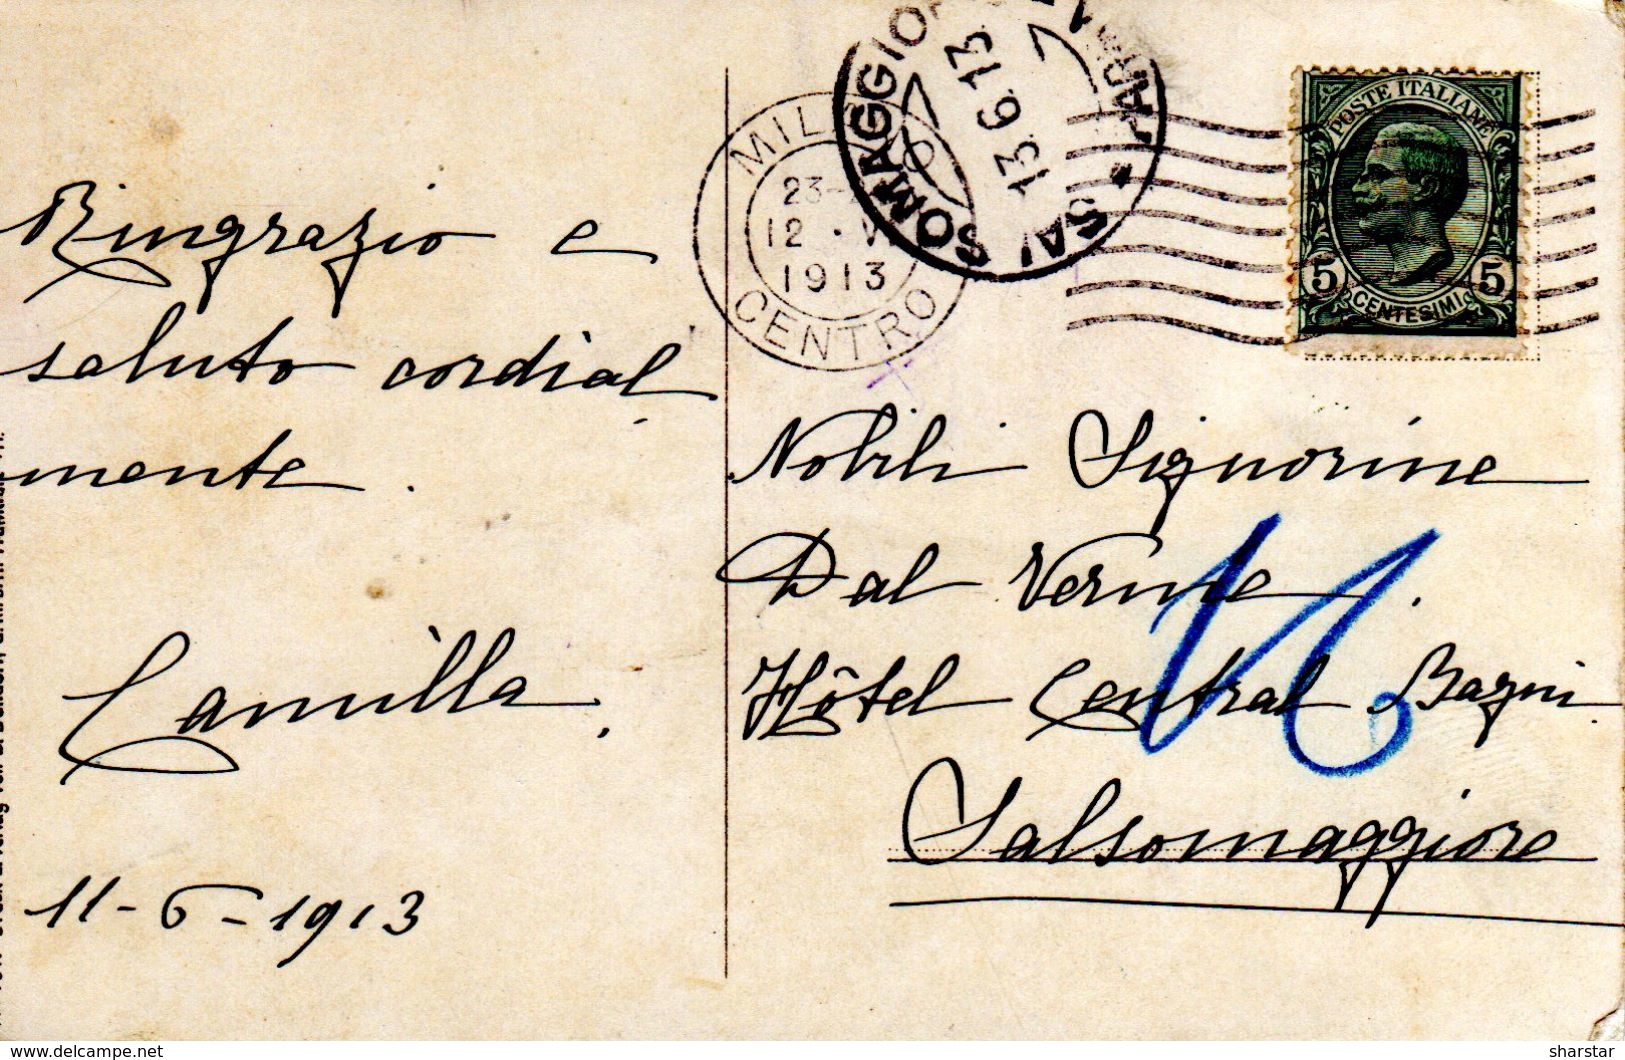 Ringrazio e
saluto cordial
mente.
Camilla.
11-6-1913
MILANO
23-
12 · VI
1913
CENTRO
SALSOMAGGIORE
PARMA
13 6 13
7
POSTE ITALIANE
5 5
CENTESIMI
Nobili Signorine
Dal Verme.
Hôtel Central Bagni
Salsomaggiore
delcampe.net
sharstar